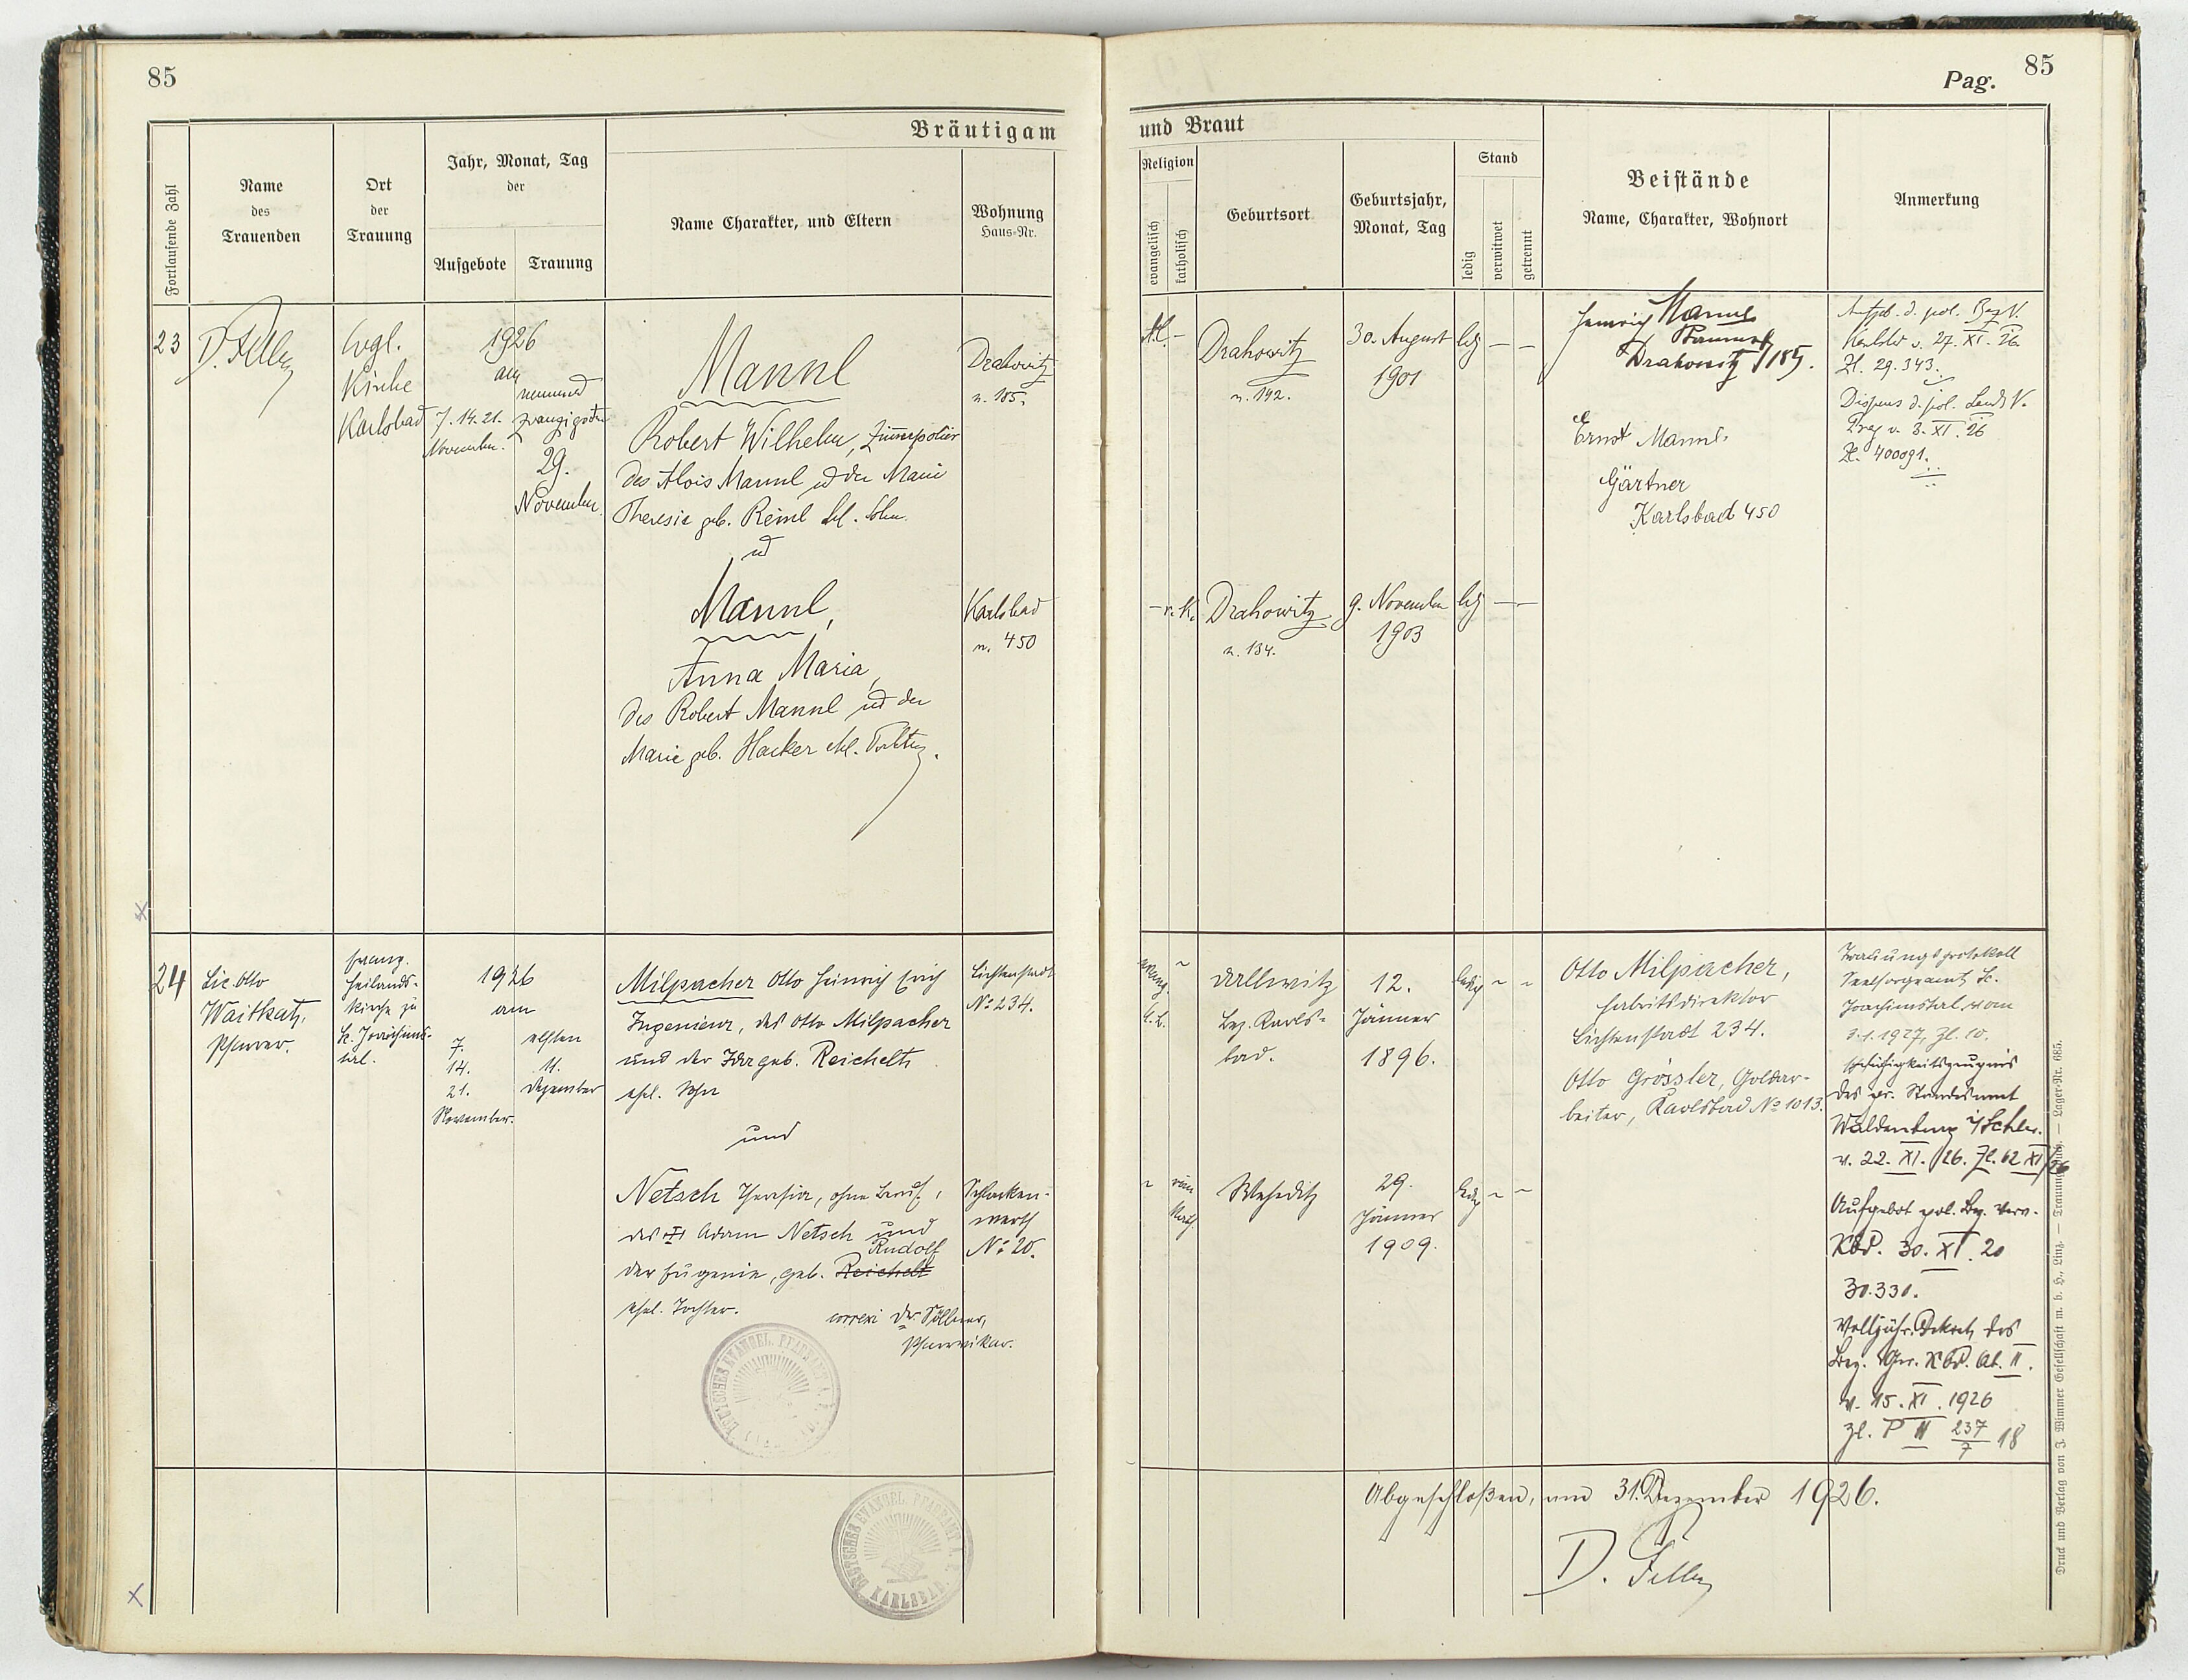 85
Bräutigam
Fortlaufende Zahl
Name
des
Trauenden
Ort
der
Trauung
Jahr, Monat, Tag
der
Aufgebote
Trauung
Name Charakter, und Eltern
Wohnung
Haus-Nr.
23
Evgl.
Kirche
Karlsbad
1926
am
7. 14. 21.
November.
29.
November
Mannl
Robert Wilhelm, Zimmerpolier
des Alois Mannl u der Marie
Theresie geb. Reinl ehl. Sohn.
ud
Mannl,
Anna Maria,
des Robert Mannl ud der
Marie geb. Hacker ehl. Tochter.
Drahowitz
n. 185.
Karlsbad
n. 450
24
Lic. Otto
Waitkat,
Pfarrer.
evang.
Heilands-
kirche zu
St. Joachims-
tal.
1926
am
7.
14.
21.
November.
elften
11.
Dezember
Milpacher Otto Heinrich Erich
Ingenieur, des Otto Milpacher
und der Ida geb. Reichelt
ehl. Sohn
und
Netsch Theresia, ohne Beruf,
des Adam Netsch und
Rudolf
der Eugenie, geb. Reichelt
ehel. Tochter.
correxi
Pfarrvikar.
Lichtenstadt
No 234.
Schlacken-
werth
No 20.
DEUTSCHES EVANGEL. PFARRAMT A. B.
DEUTSCHES EVANGEL. PFARRAMT A. B. KARLSBAD
Pag. 85
und Braut
Religion
evangelisch
katholisch
Geburtsort
Geburtsjahr,
Monat, Tag
Stand
ledig
verwitwet
getrennt
Beistände
Name, Charakter, Wohnort
Anmerkung
Drahowitz
n. 192.
30. August
1901
ledg
Heinrich Mannl
Drahowitz 185.
Ernst Mannl.
Gärtner
Karlsbad 450
Aufgb. d. pol. Bez V.
Karlsbd v. 27. XI. 26
Zl. 29.343.
Dispens d. pol. Landes V.
Prag v. 3. XI. 26
Zl. 400091.
r. K.
Drahowitz
n. 134.
9. November
1903
ledg
evang.
Dallwitz
Bez. Karls-
bad.
12.
Jänner
1896.
ledig
Otto Milpacher,
Fabriksdirektor
Lichtenstadt 234.
Otto Grössler, Goldar-
beiter, Karlsbad No 1013.
Trauungsprotokoll
Seelsorgeamt St.
Joachimstal vom
3.1.1927, Zl. 10.
Ehefähigkeitszeugnis
des pr. Standesamt
Waldenburg i/Schles.
v. 22. XI. 26. Zl. 62 XI/26
Aufgebot pol. Bez. Verw.
Kbd. 30. XI. 26
30.330.
Volljähr. Dekret des
Bez. Ger. Kbd. Abt. II.
v. 15. XI. 1926
Zl. P II 237/7 18
röm
kath.
Wehediz
29.
Jänner
1909.
ledig
Abgeschloßen, am 31. Dezember 1926.
Druck und Verlag von J. Wimmer Gesellschaft m. b. H., Linz. — Trauungsbuch. — Lager-Nr. 685.